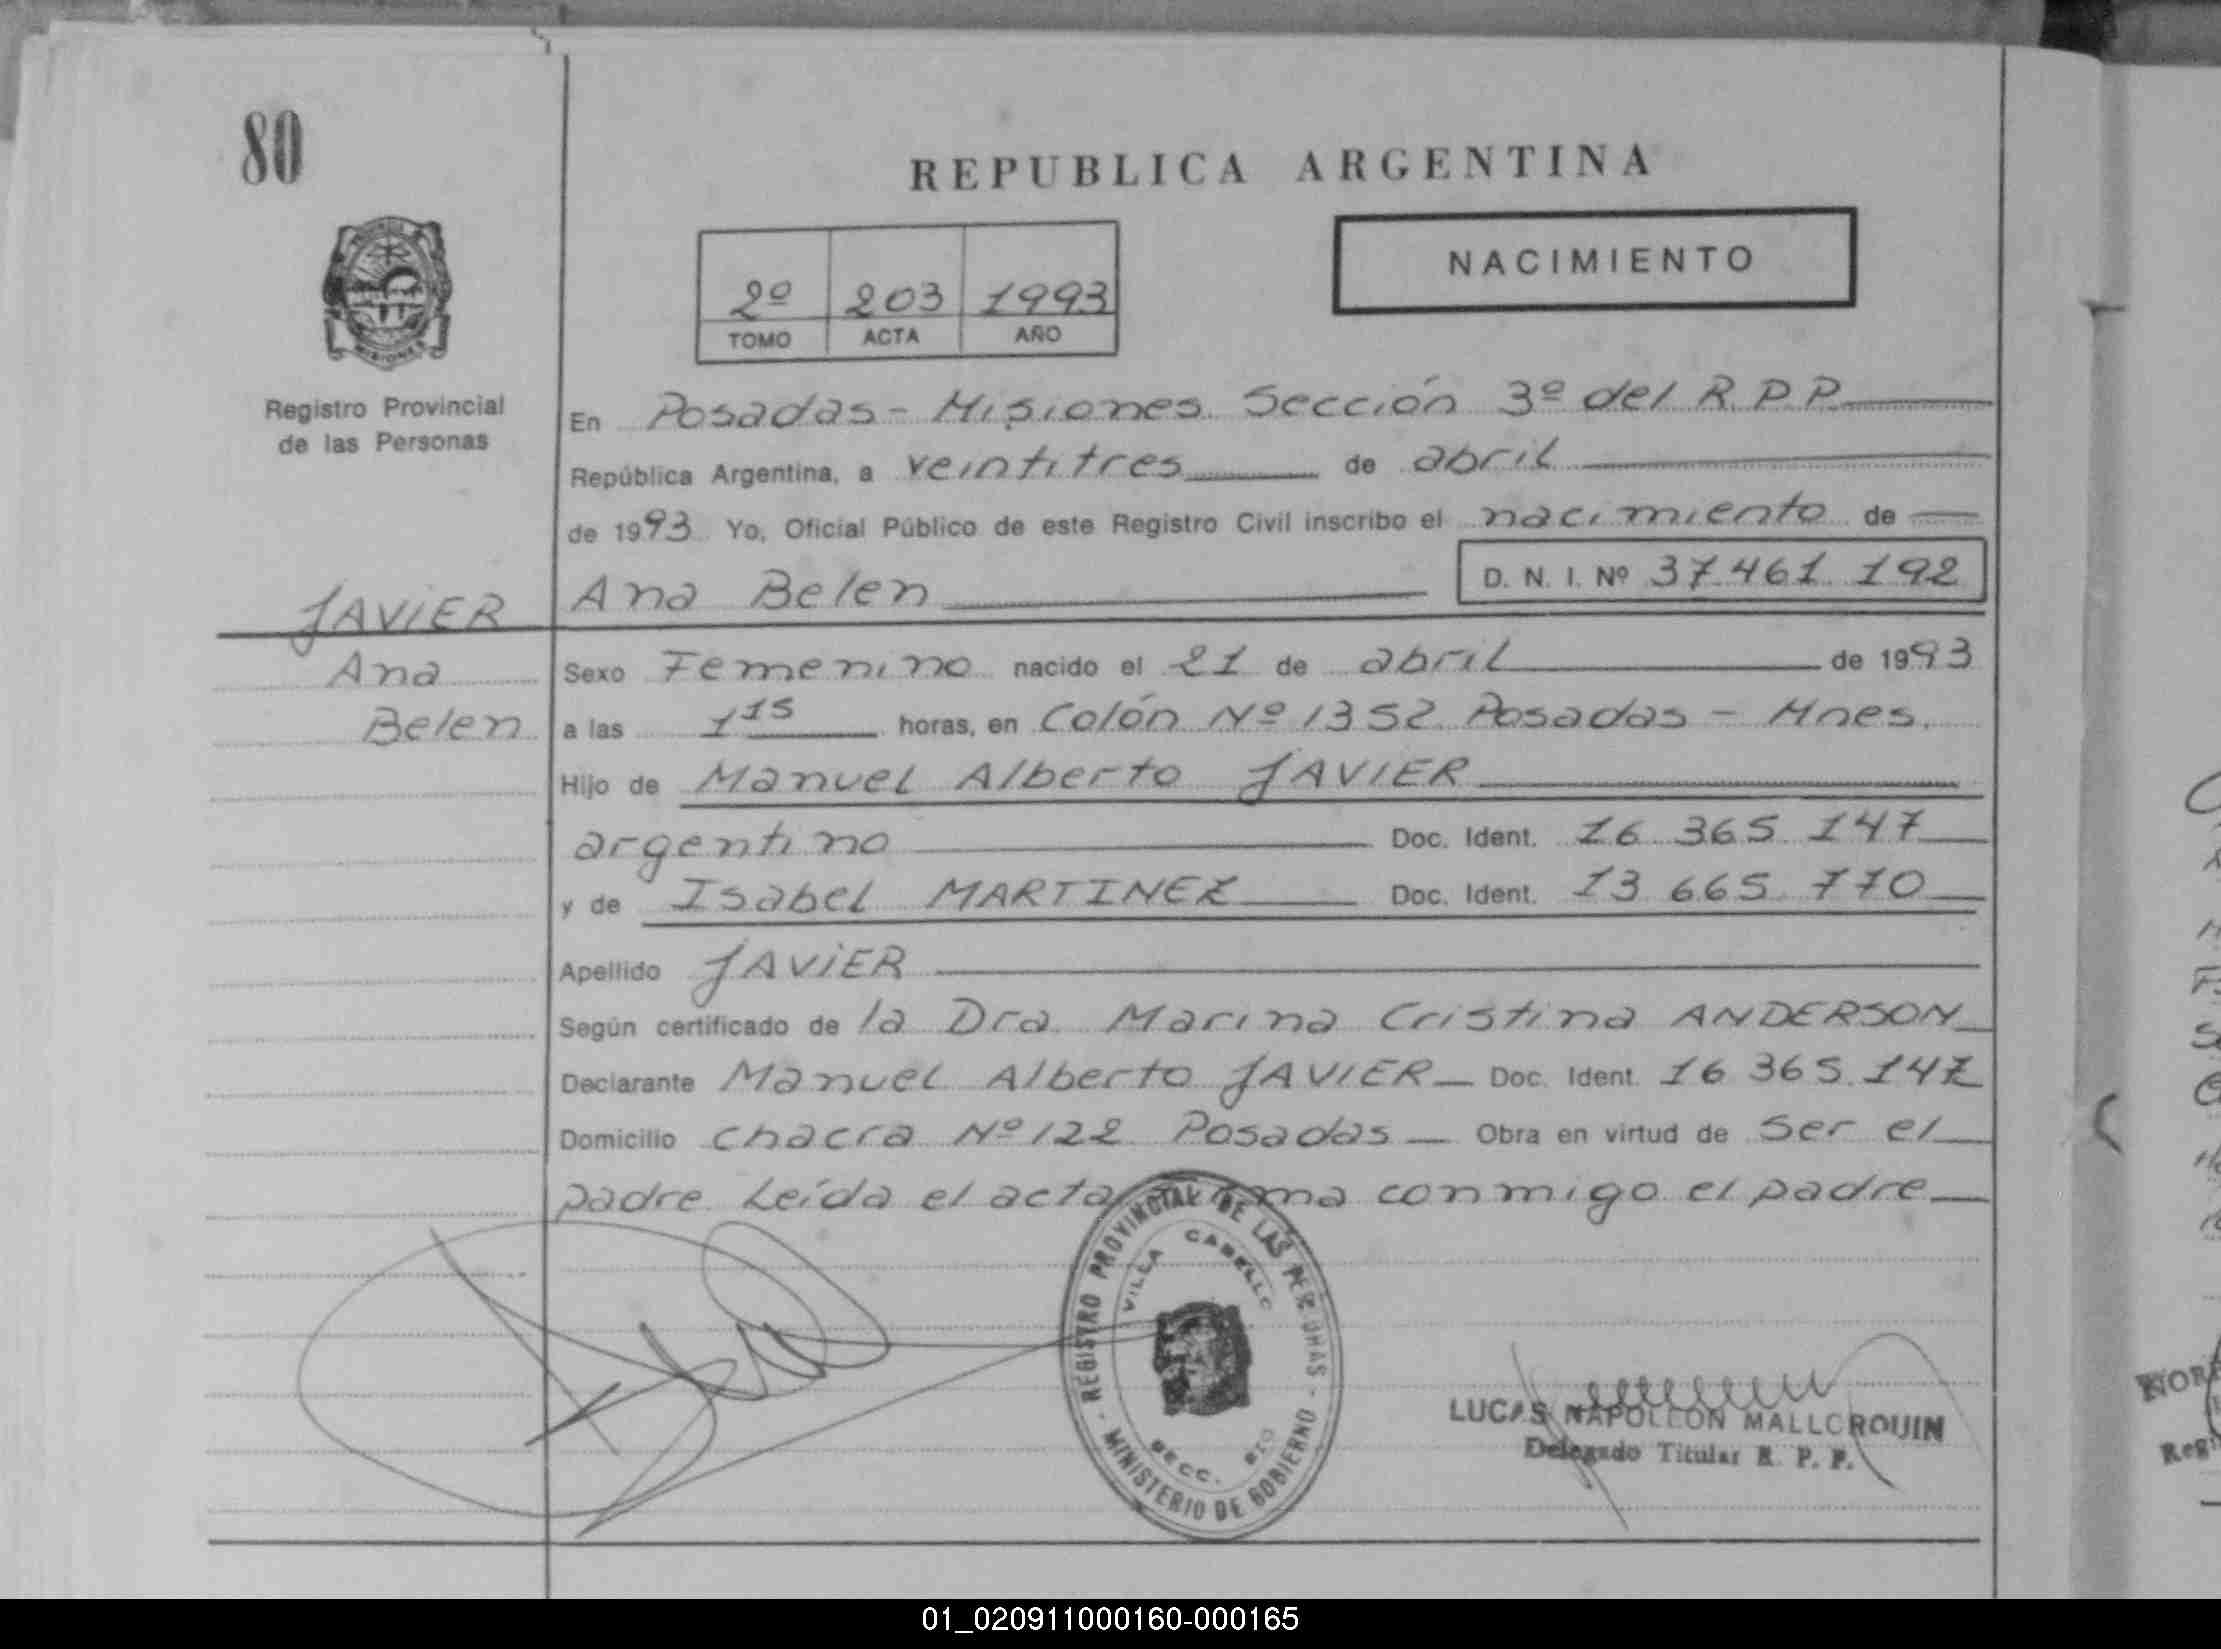 80
REPUBLICA ARGENTINA
NACIMIENTO
2º 203 1993
TOMO ACTA AÑO
MISIONES
Registro Provincial
de las Personas
En Posadas - Misiones Sección 3º del R.P.P.
República Argentina, a veintitres de abril
de 1993 Yo, Oficial Público de este Registro Civil inscribo el nacimiento de
D. N. I. Nº 37.461.192
JAVIER Ana Belen
Ana Sexo Femenino nacido el 21 de abril de 1993
Belen a las 1 15 horas, en Colón Nº 1352 Posadas - Mnes.
Hijo de Manuel Alberto JAVIER
argentino Doc. Ident. 16.365.147
y de Isabel MARTINEZ Doc. Ident. 13.665.770
Apellido JAVIER
Según certificado de la Dra. Marina Cristina ANDERSON
Declarante Manuel Alberto JAVIER Doc. Ident. 16 365.147
Domicilio chacra Nº 122 Posadas Obra en virtud de ser el
padre Leída el acta firma conmigo el padre
REGISTRO PROVINCIAL DE LAS PERSONAS - MINISTERIO DE GOBIERNO
VILLA CABELLO
SECC.
LUCAS NAPOLEON MALLORQUIN
Delegado Titular R. P. P.
01_020911000160-000165